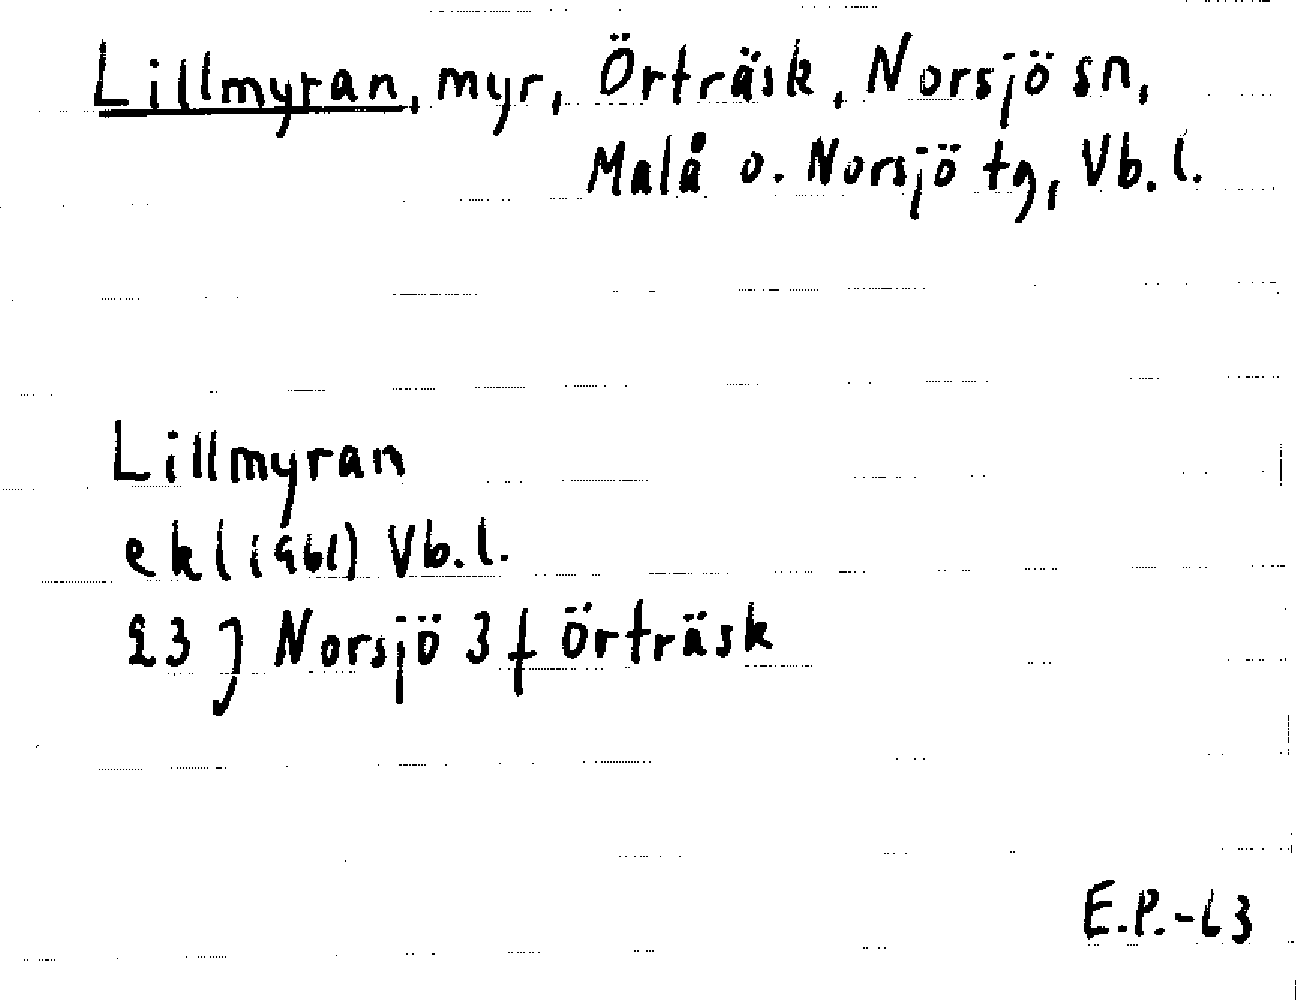 Lillmyran, myr, Örträsk, Norsjö sn,
Malå o. Norsjö tg, Vb. l.
Lillmyran
ekl (1961) Vb. l.
23 J Norsjö 3 f Örträsk
E.P.-63